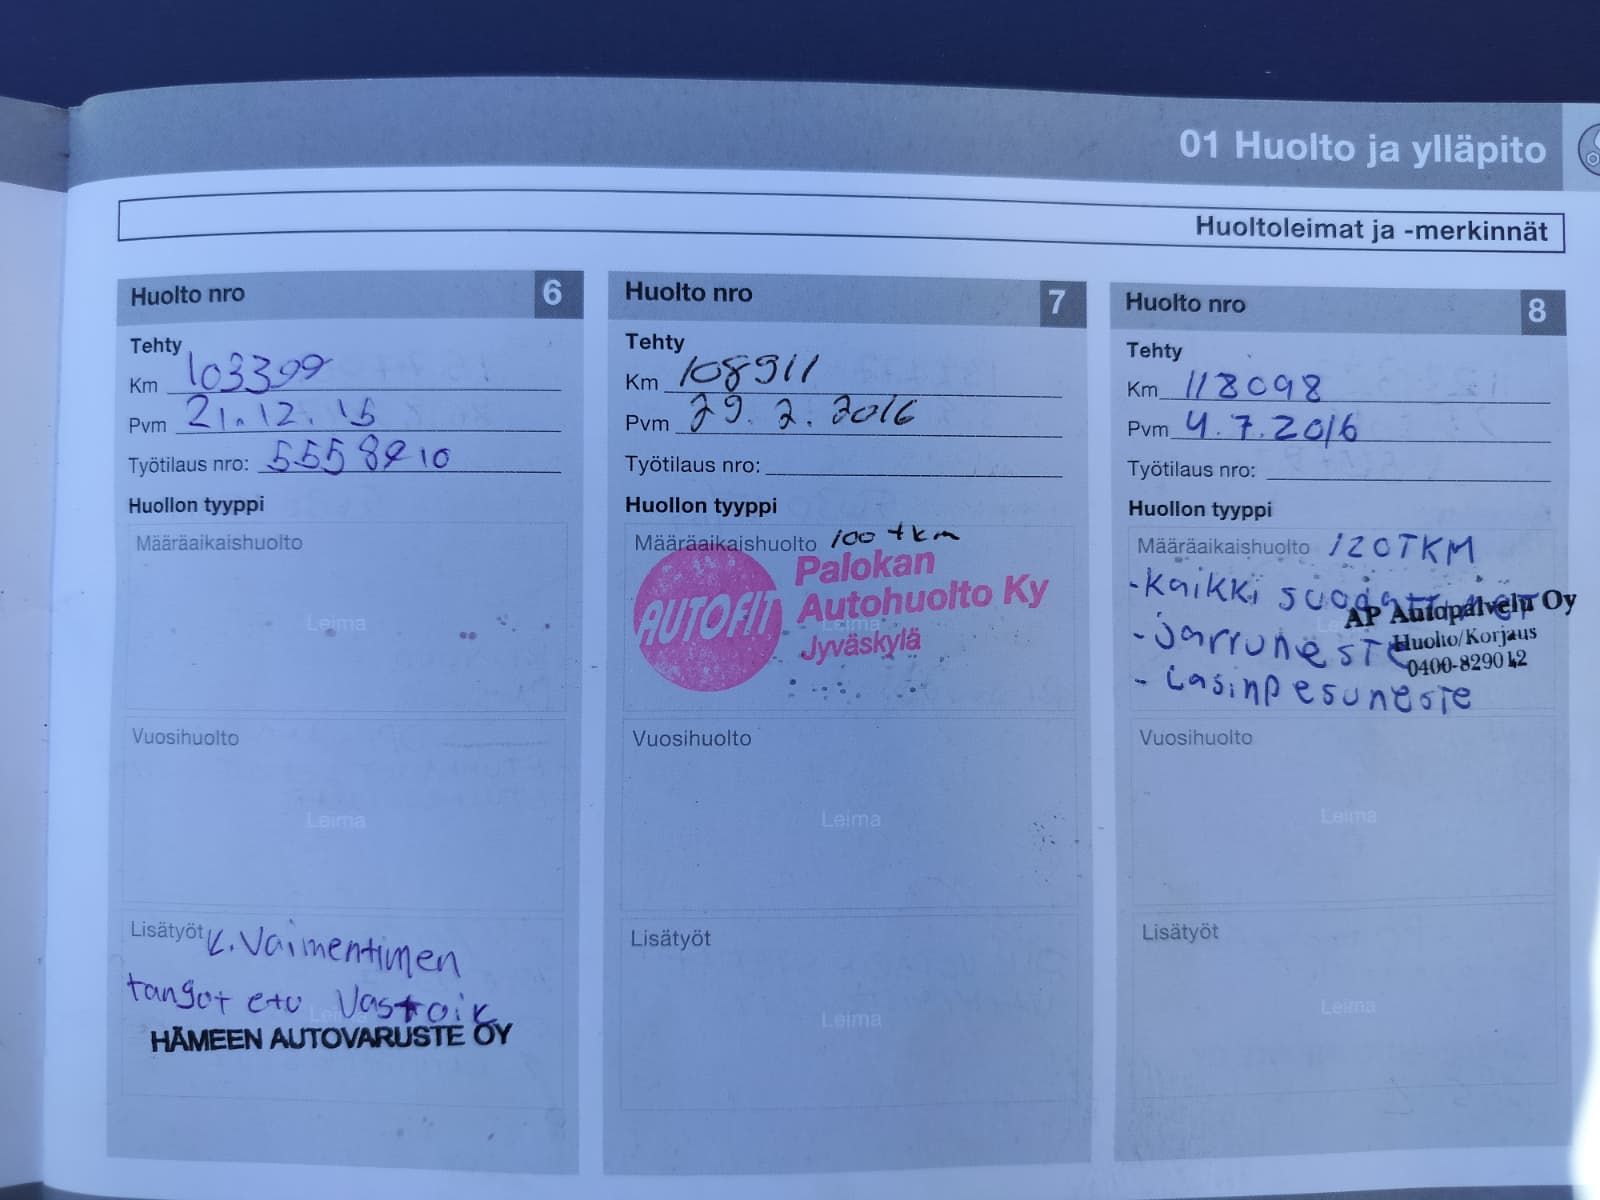 01 Huolto ja ylläpito
Huoltoleimat ja -merkinnät
Huolto nro 6
Tehty
Km 103399
Pvm 21.12.15
Työtilaus nro: 5558910
Huollon tyyppi
Määräaikaishuolto
Leima
Vuosihuolto
Leima
Lisätyöt K. Vaimentimen
tangot etu Vas+oik
Leima
HÄMEEN AUTOVARUSTE OY
Huolto nro 7
Tehty
Km 108911
Pvm 29.2.2016
Työtilaus nro:
Huollon tyyppi
Määräaikaishuolto 100 tkm
AUTOFIT
Palokan
Autohuolto Ky
Jyväskylä
Leima
Vuosihuolto
Leima
Lisätyöt
Leima
Huolto nro 8
Tehty
Km 118098
Pvm 4.7.2016
Työtilaus nro:
Huollon tyyppi
Määräaikaishuolto 120TKM
-Kaikki suodattimet
AP Autopalvelu Oy
- Jarruneste
Huolto/Korjaus
0400-829012
- Lasinpesuneste
Vuosihuolto
Leima
Lisätyöt
Leima